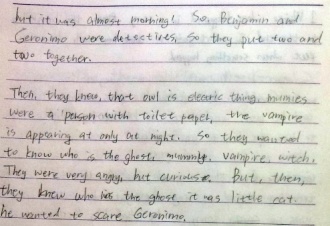 but it was almost morning! So, Benjamin and
Geronimo were detectives, so they put two and
two together.
Then, they knew, that owl is electric thing, mumies
were a person with toilet paper, the vampire
is appearing at only at night. So they wanted
to know who is the ghost, mummy, vampire, witch.
They were very angry, but curious. But, then,
they knew who the ghose it was little cat.
he wanted to scare Geronimo.